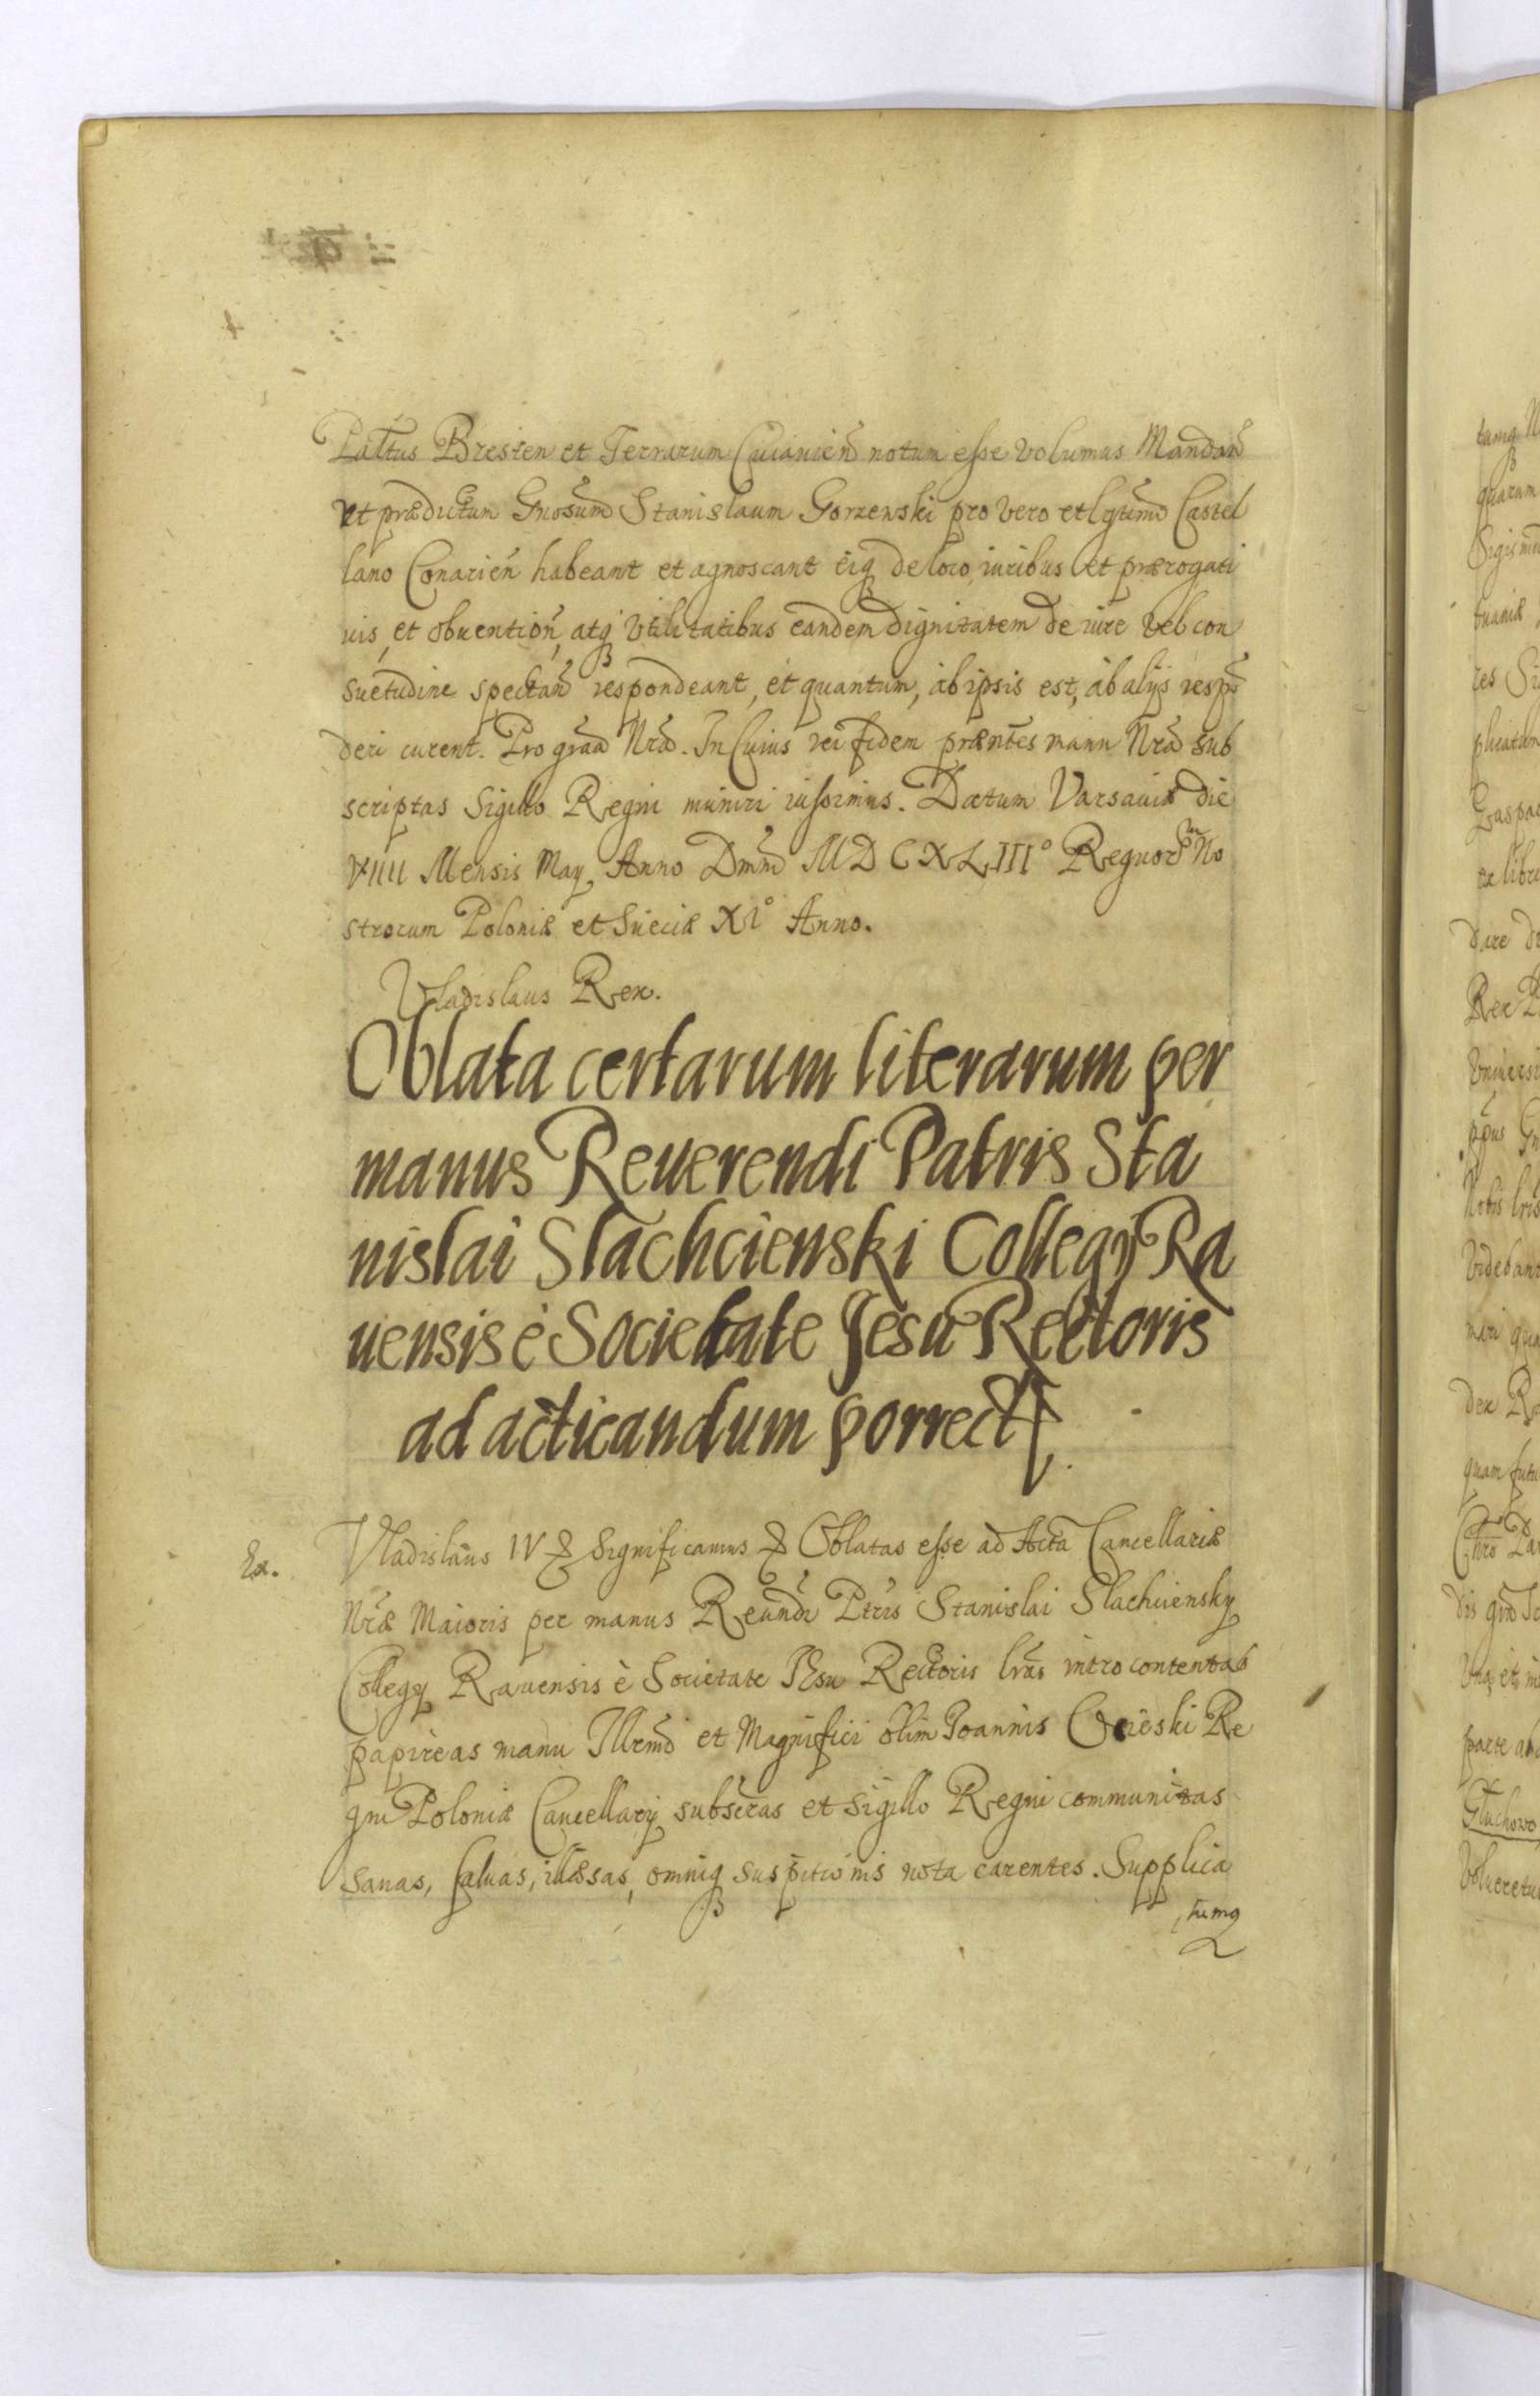 Paltus Bresten et Terrarum Cuiavien̄ notum esse volumus Mandan̄
vt prædictum Gnosum Stanislaum Gorzenski pro vero et lgtimo Castel
lano Conarien̄ habeant et agnoscant eiq de loco, iuribus et prærogati
uis, et obuention̄, atq vtilitatibus eandem dignitatem de iure vel con
suetudine spectan̄ respondeant, et quantum, ab ipsis est, ab alijs respō
deri curent. Pro graā Nrā. In Cuius rei fidem præntes manu Nrā sub
scriptas Sigillo Regni muniri iussimus. Datum Varsauiæ die
VIIII Mensis May Anno Dmni MDCXLIII° Regnorum No
strorum Poloniæ et Sueciæ XI° Anno.
Vladislaus Rex.
Oblata certarum literarum per
manus Reuerendi Patris Sta
nislai Slachcienski Collegij Ra
uensis è Societate Jesu Rectoris
ad acticandum porrect
Ex.
Vladislaus IV Significamus Oblatas esse ad Acta Cancellariæ
Nræ Maioris per manus Reundi Ptris Stanislai Slachciensky
Collegy Rauensis è Societate Jesu Rectoris lras intro contentas
papireas manu Illrmi et Magnifici olim Joannis Ocieski Re
gni Poloniæ Cancellarij subscras et Sigillo Regni communitas
sanas, saluas, illæsas, omniq suspitionis nota carentes. Supplica
tumq